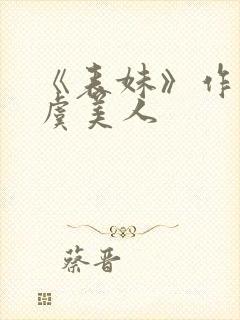 《表妹》作
虞美人
蔡晋